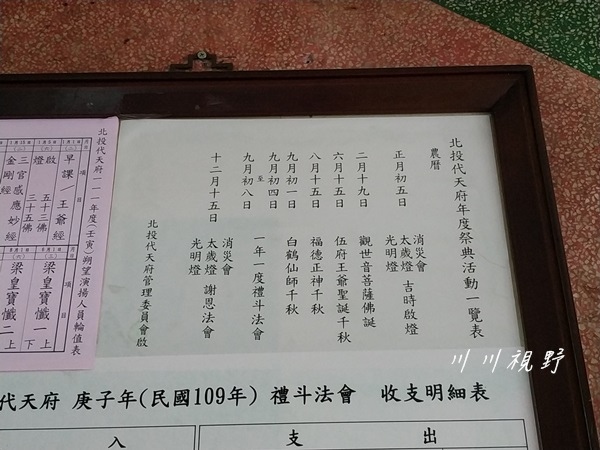 北投代天府年度祭典活動一覽表
農曆
正月初五
消災會
太歲燈
光明燈
吉時啟燈
二月十九日
觀世音菩薩佛誕
六月十五日
伍府王爺聖誕千秋
八月十五日
福德正神千秋
九月初一日
白鶴仙師千秋
九月初四日
至
九月初八日
一年一度禮斗法會
十二月十五日
消災會
太歲燈
光明燈
謝恩法會
北投代天府管理委員會啟
北投代天府一一一年度(壬寅)朔望演揚人員輪值表
項目
早課/王爺經
啟燈
五十三佛
三十五佛
三官感應妙經
金剛經
項目
梁皇寶懺一上
下
梁皇寶懺二上
代天府 庚子年(民國109年) 禮斗法會 收支明細表
入
支出
川川視野